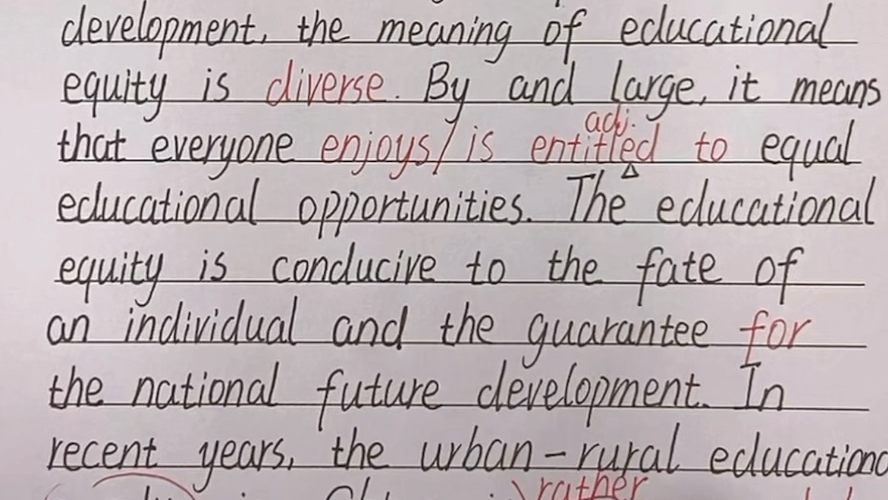 development, the meaning of educational
equity is diverse. By and large, it means
adj.
that everyone enjoys/is entitled to equal
educational opportunities. The educational
equity is conducive to the fate of
an individual and the guarantee for
the national future development. In
recent years, the urban-rural educationa
rather